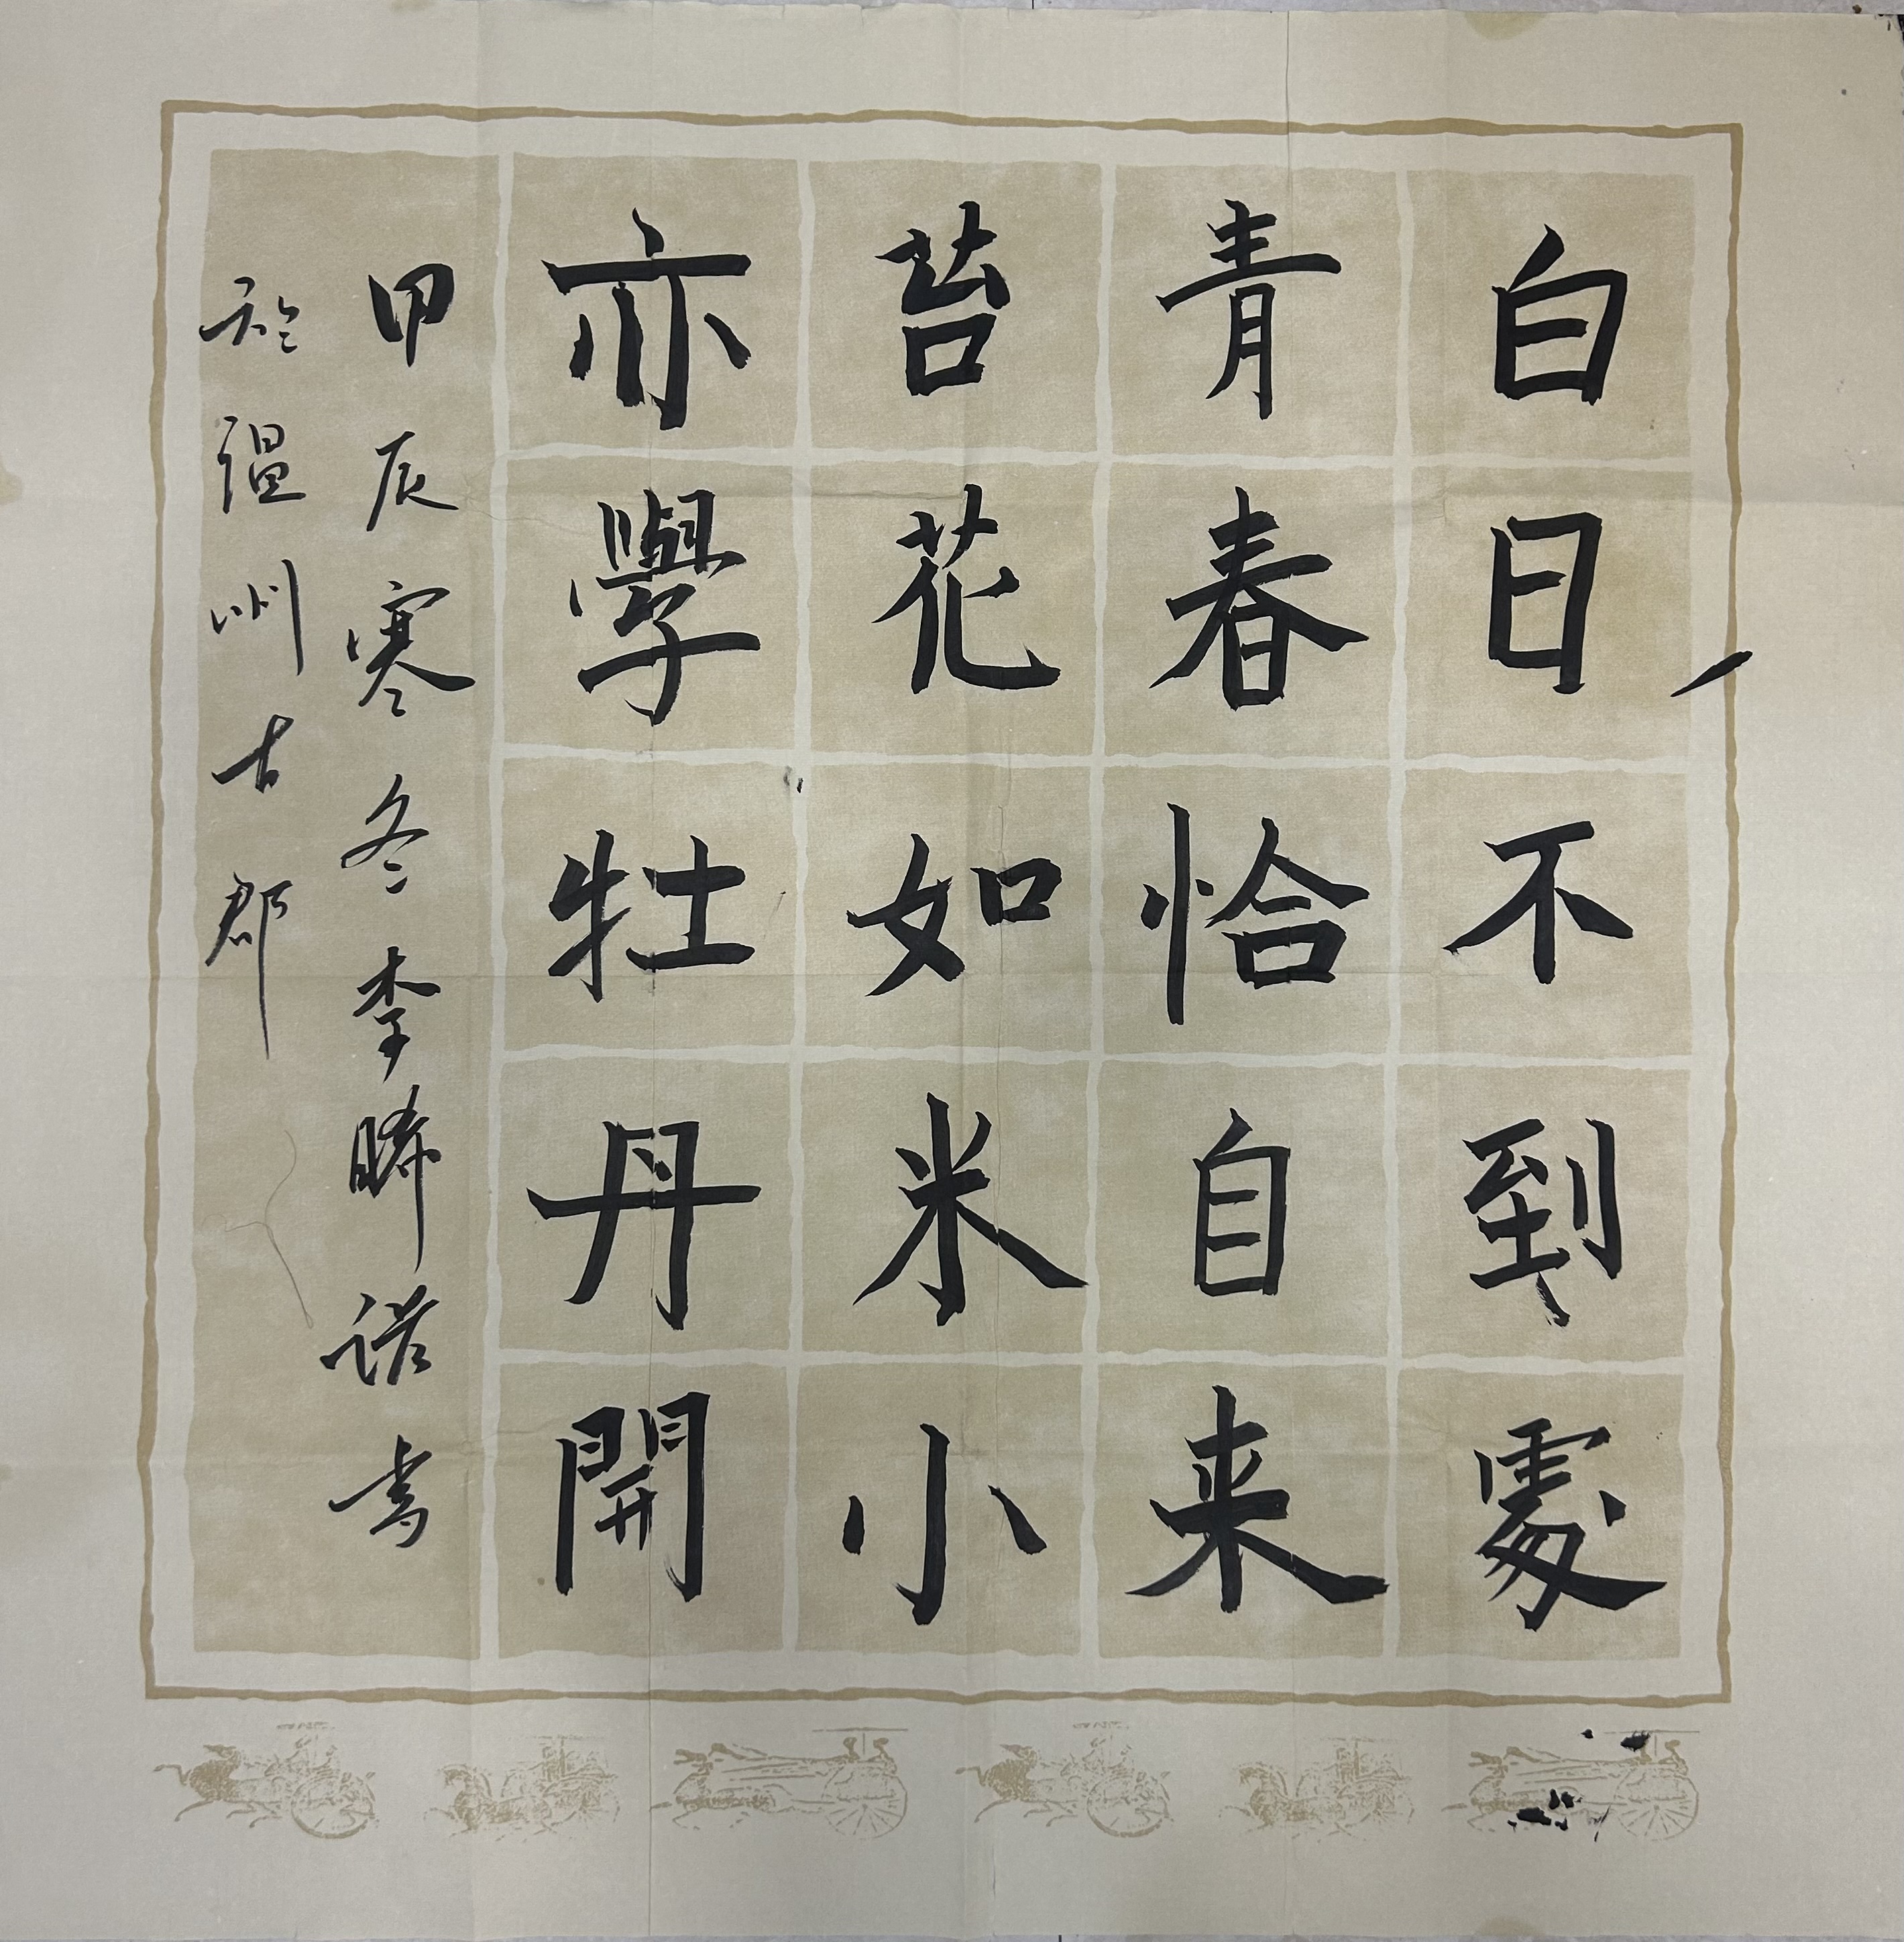 白日不到處
青春恰自来
苔花如米小
亦學牡丹開
甲辰寒冬李晞諾書
於温州古郡